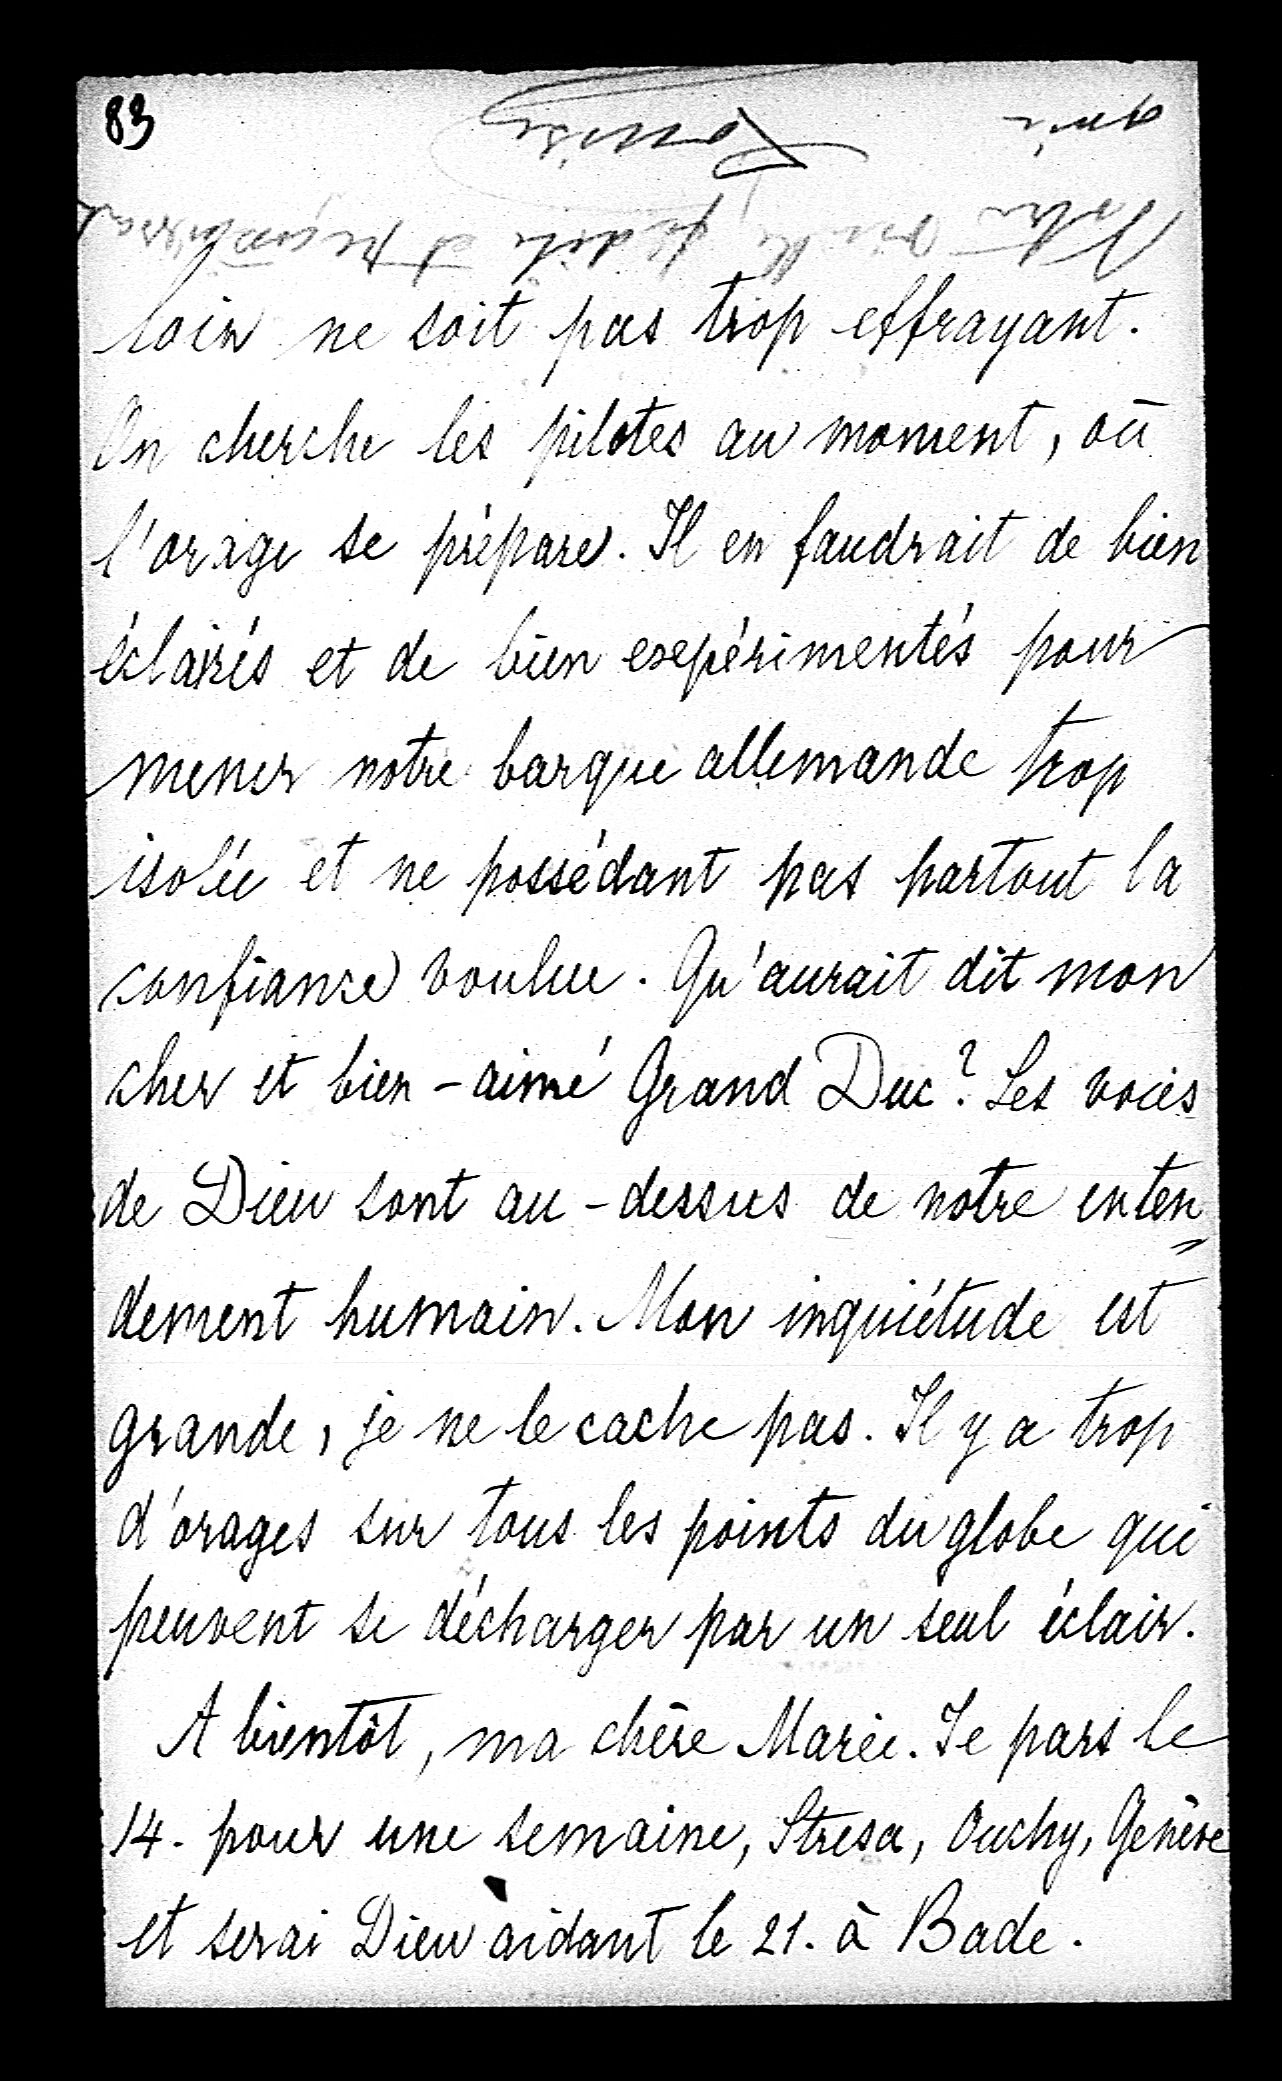 83
loin ne soit pas trop effrayant.
On cherche les pilotes au moment, où
l'orage se prépare. Il en faudrait de bien
éclairés et de bien expérimentés pour
mener notre barque allemande trop
isolée et ne possédant pas partout la
confiance voulue. Qu'aurait dit mon
cher et bien-aimé Grand Duc? Les voies
de Dieu sont au-dessus de notre enten
dement humain. Mon inquiétude est
grande, je ne le cache pas. Il y a trop
d'orages sur tous les points du globe qui
peuvent se décharger par un seul éclair.
A bientôt, ma chère Marie. Je pars le
14. pour une semaine, Stresa, Ouchy, Genève
et serai Dieu aidant le 21. à Bade.
Votre vieille, fidèle et reconnaissante
amie Louise